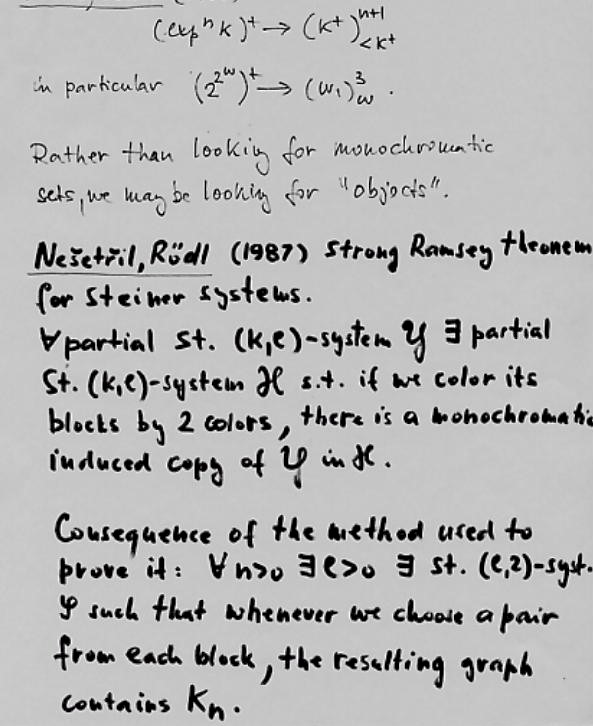 (exp^n κ)^+ → (κ^+)^{n+1}_{<κ^+}
in particular (2^{2^ω})^+ → (ω_1)^3_ω .
Rather than looking for monochromatic
sets, we may be looking for "objects".
Nešetřil, Rödl (1987) Strong Ramsey theorem
for Steiner systems.
∀ partial St. (k,ℓ)-system 𝒴 ∃ partial
St. (k,ℓ)-system ℋ s.t. if we color its
blocks by 2 colors, there is a monochromatic
induced copy of 𝒴 in ℋ.
Consequence of the method used to
prove it: ∀ n>0 ∃ ℓ>0 ∃ St. (ℓ,2)-syst.
𝒴 such that whenever we choose a pair
from each block, the resulting graph
contains K_n.